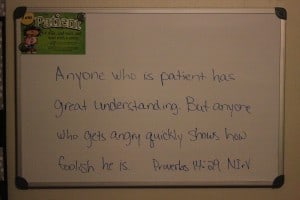 Patient
Anyone who is patient has
great understanding. But anyone
who gets angry quickly shows how
foolish he is. Proverbs 14:29 NIrV